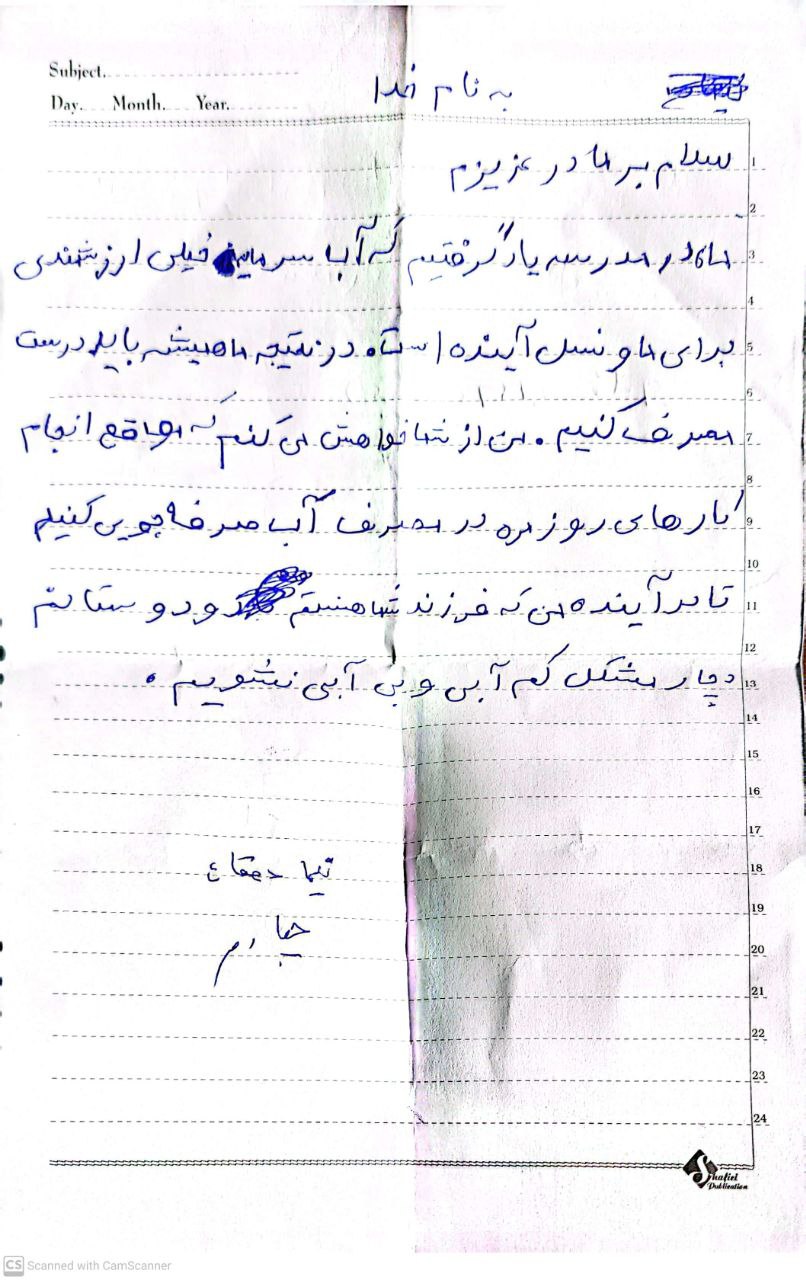 Subject.
به نام خدا
Day. Month. Year.
سلام بر مادر عزیزم
1
2
ما در مدرسه یاد گرفتیم که آب سرمایه خیلی ارزشمندی
3
4
برای ما و نسل آینده است. در نتیجه ما همیشه باید درست
5
6
مصرف کنیم. من از شما خواهش می کنم که مواقع انجام
7
8
کارهای روزمره در مصرف آب صرفه جویی کنیم
9
10
تا در آینده من که فرزند شما هستم و دوستانم
11
12
دچار مشکل کم آبی و بی آبی نشویم.
13
14
15
16
17
نیما
18
19
چهارم
20
21
22
23
24
Shafiei
Publication
CS Scanned with CamScanner